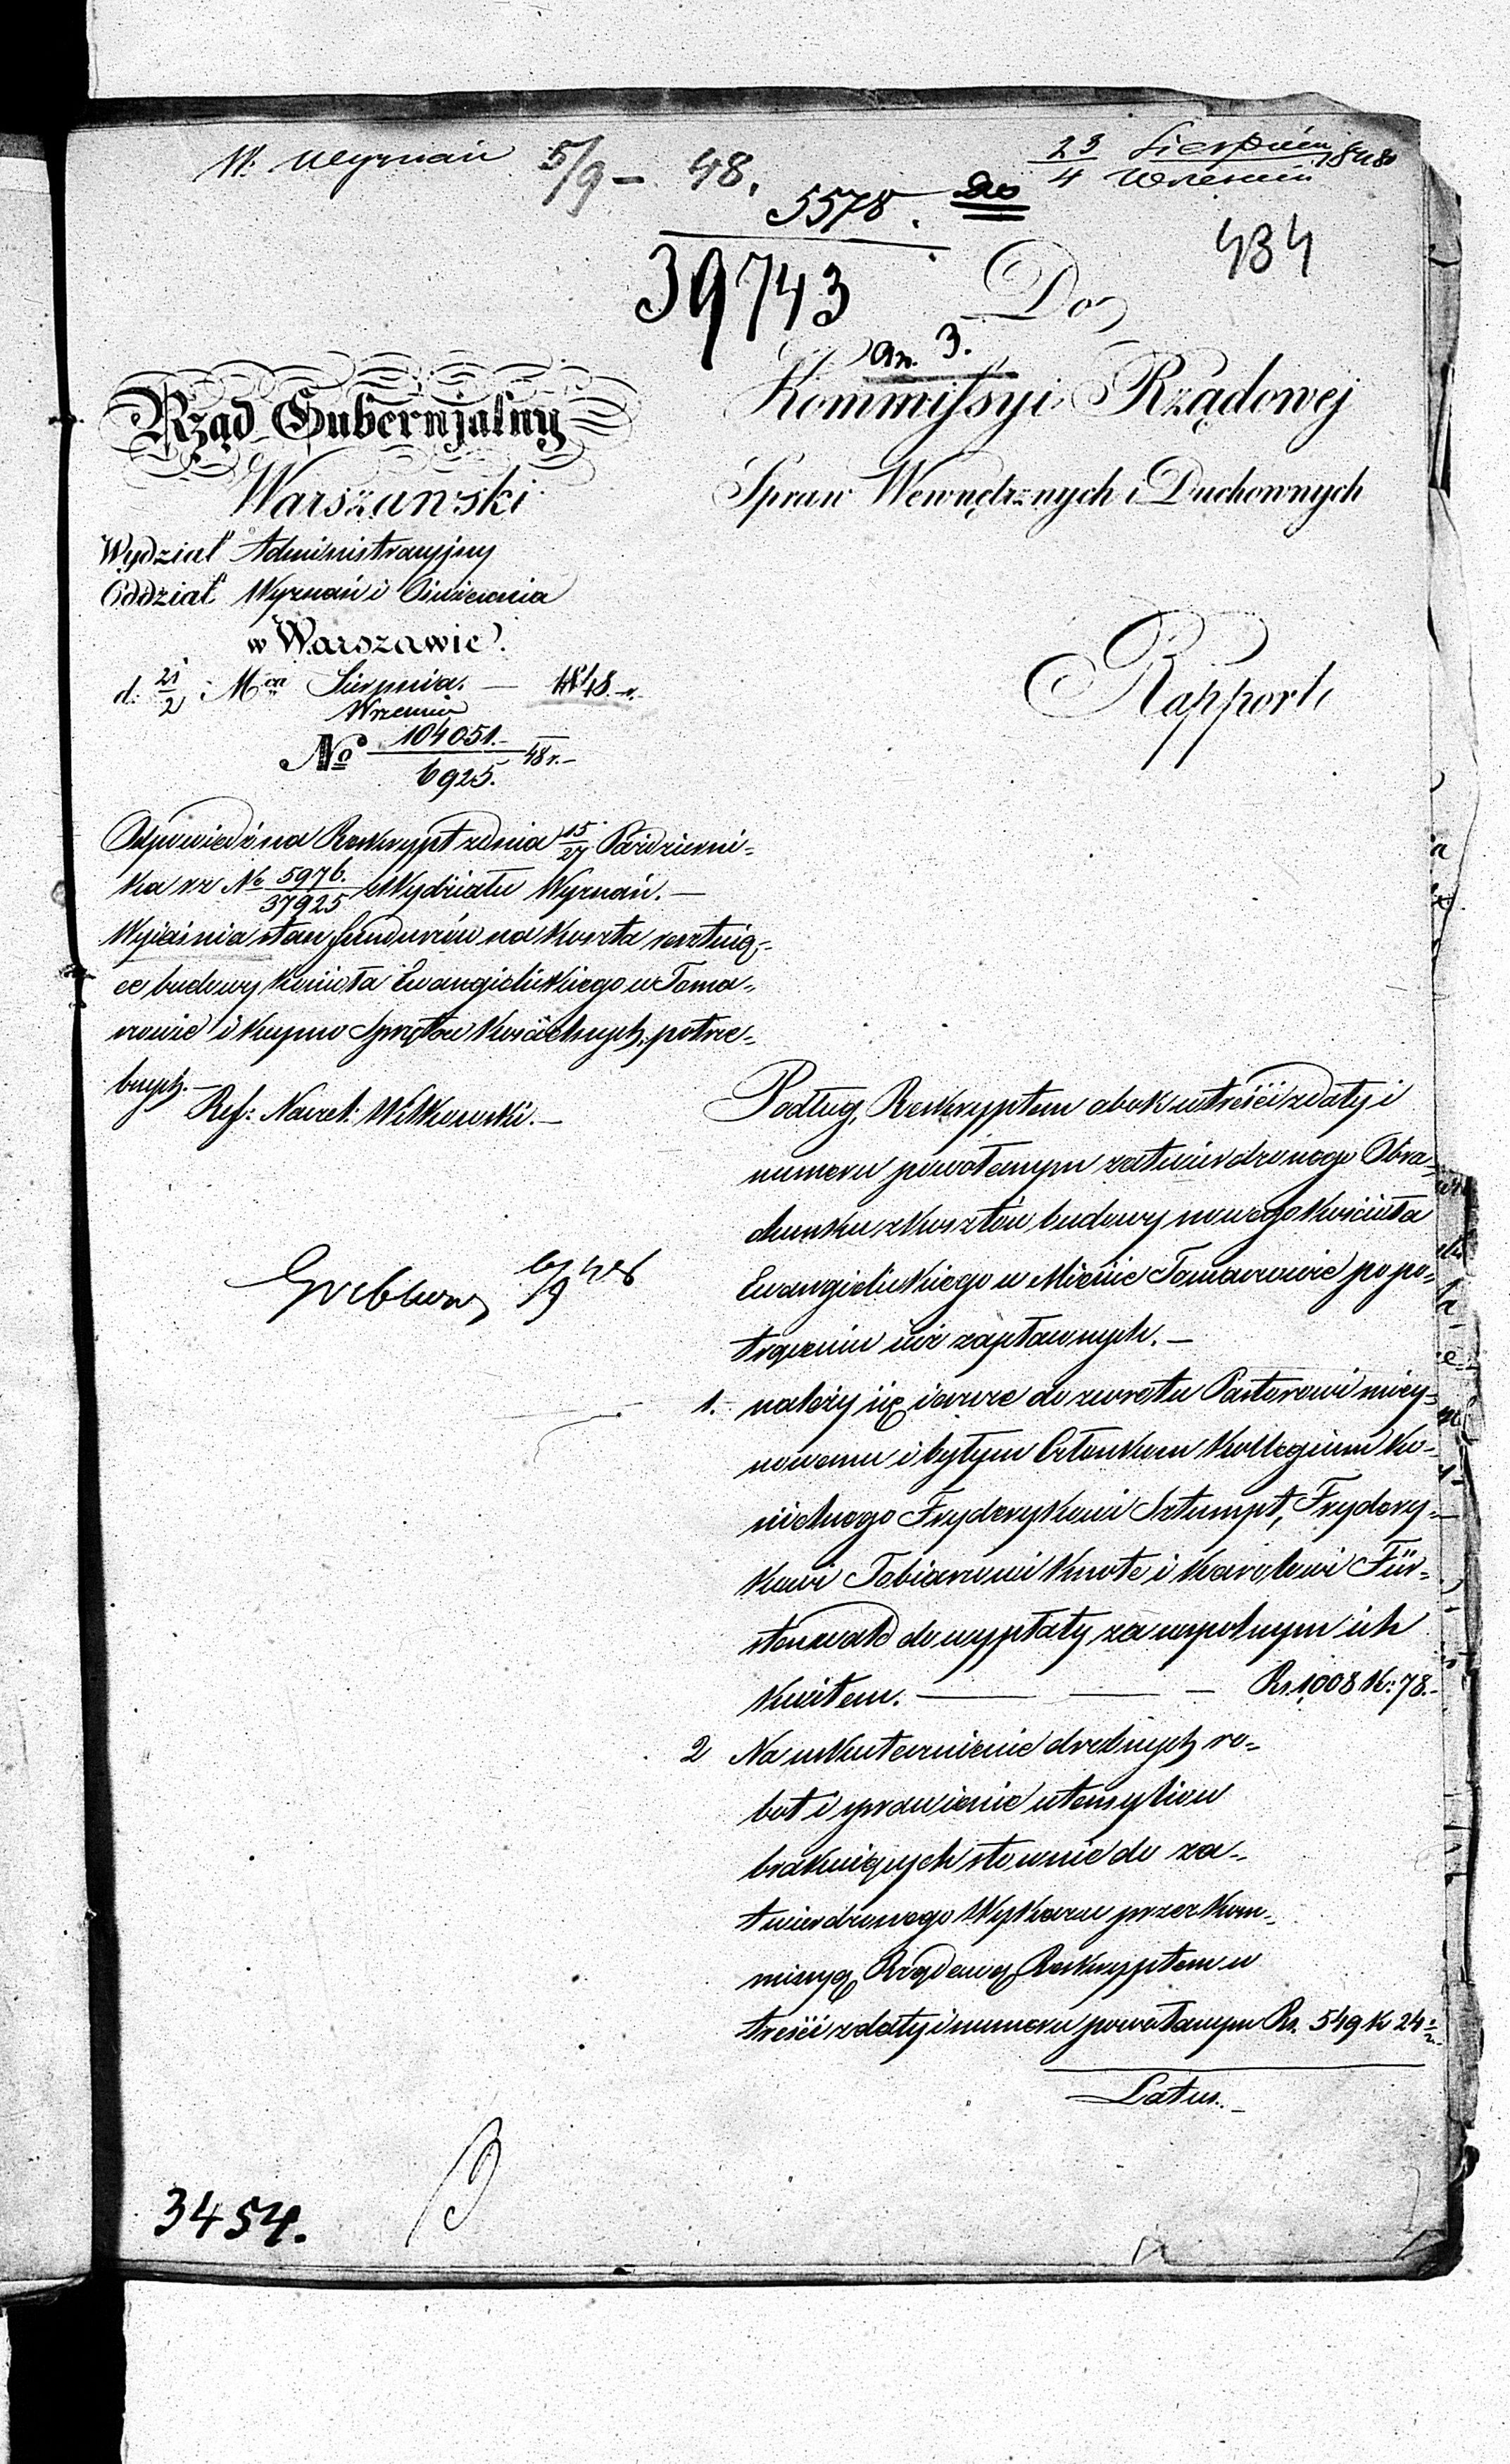 W. Wyznań 5/9 – 48.
23 Sierpnia
4 Września 1848
5578.
39743
434
Do
an. 3.
Kommissyi Rządowej
Spraw Wewnętrznych i Duchownych
Rapport
Rząd Gubernjalny
Warszawski
Wydział Administracyjny
Oddział Wyznań i Oświecenia
w Warszawie.
d. 21/2 Mca Sierpnia. — 1848. r.
Września
No 104051.–
6925. 48 r.–
Odpowiedź na Reskrypt z dnia 15/27 Październi-
ka nr No 5976./37925 Wydziału Wyznań. —
Wyiaśnia stan funduszów na koszta resztuią-
ce budowy kościoła Ewangielickiego w Toma-
szowie i kupno Sprzętów kościelnych potrze-
bnych.—
Ref: Naczel: Witkowski.—
Podług, Reskryptem obok w treści z daty i
numeru powołanym zatwierdzonego Obra-
chunku z kosztów budowy nowego kościoła
Ewangielickiego w Mieście Tomaszowie po po-
trąceniu iuż zapłaconych.—
1. należy się ieszcze do zwrotu Pastorowi miey-
scowemu i byłym Członkom Kollegium Ko-
ścielnego Fryderykowi Sztumpf, Fryдery-
kowi Tobiaszowi Knote i Karolowi Für-
stenwald do wypłaty za wspolnym ich
kwitem. — — — Rs. 1008 K: 78.–
2 Na uskutecznienie drobnych ro-
bot i sprawienie utensyliow
brakuiących stownie do za-
twierdzonego Wykazu przez Kom-
missyą Rządową Reskryptem w
treści z daty i numeru powołanym Rs. 549 K 24 1/2
Latus.–
3454.